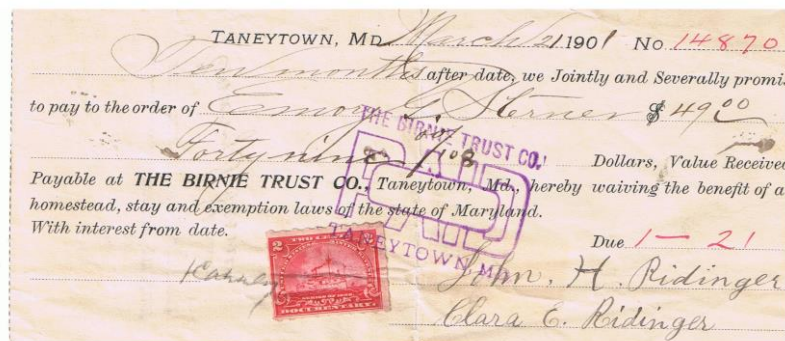 TANEYTOWN, MD. March 21 1901 No 14870
Ten months after date, we Jointly and Severally promis
to pay to the order of Emory G. Sterner $ 49 00
Forty nine Dollars, Value Received
Payable at THE BIRNIE TRUST CO., Taneytown, Md., hereby waiving the benefit of a
homestead, stay and exemption laws of the state of Maryland.
With interest from date.
Due 1 - 21
John, H. Ridinger
Clara E. Ridinger
THE BIRNIE TRUST CO.
PAID
TANEYTOWN MD.
2 2
DOCUMENTARY